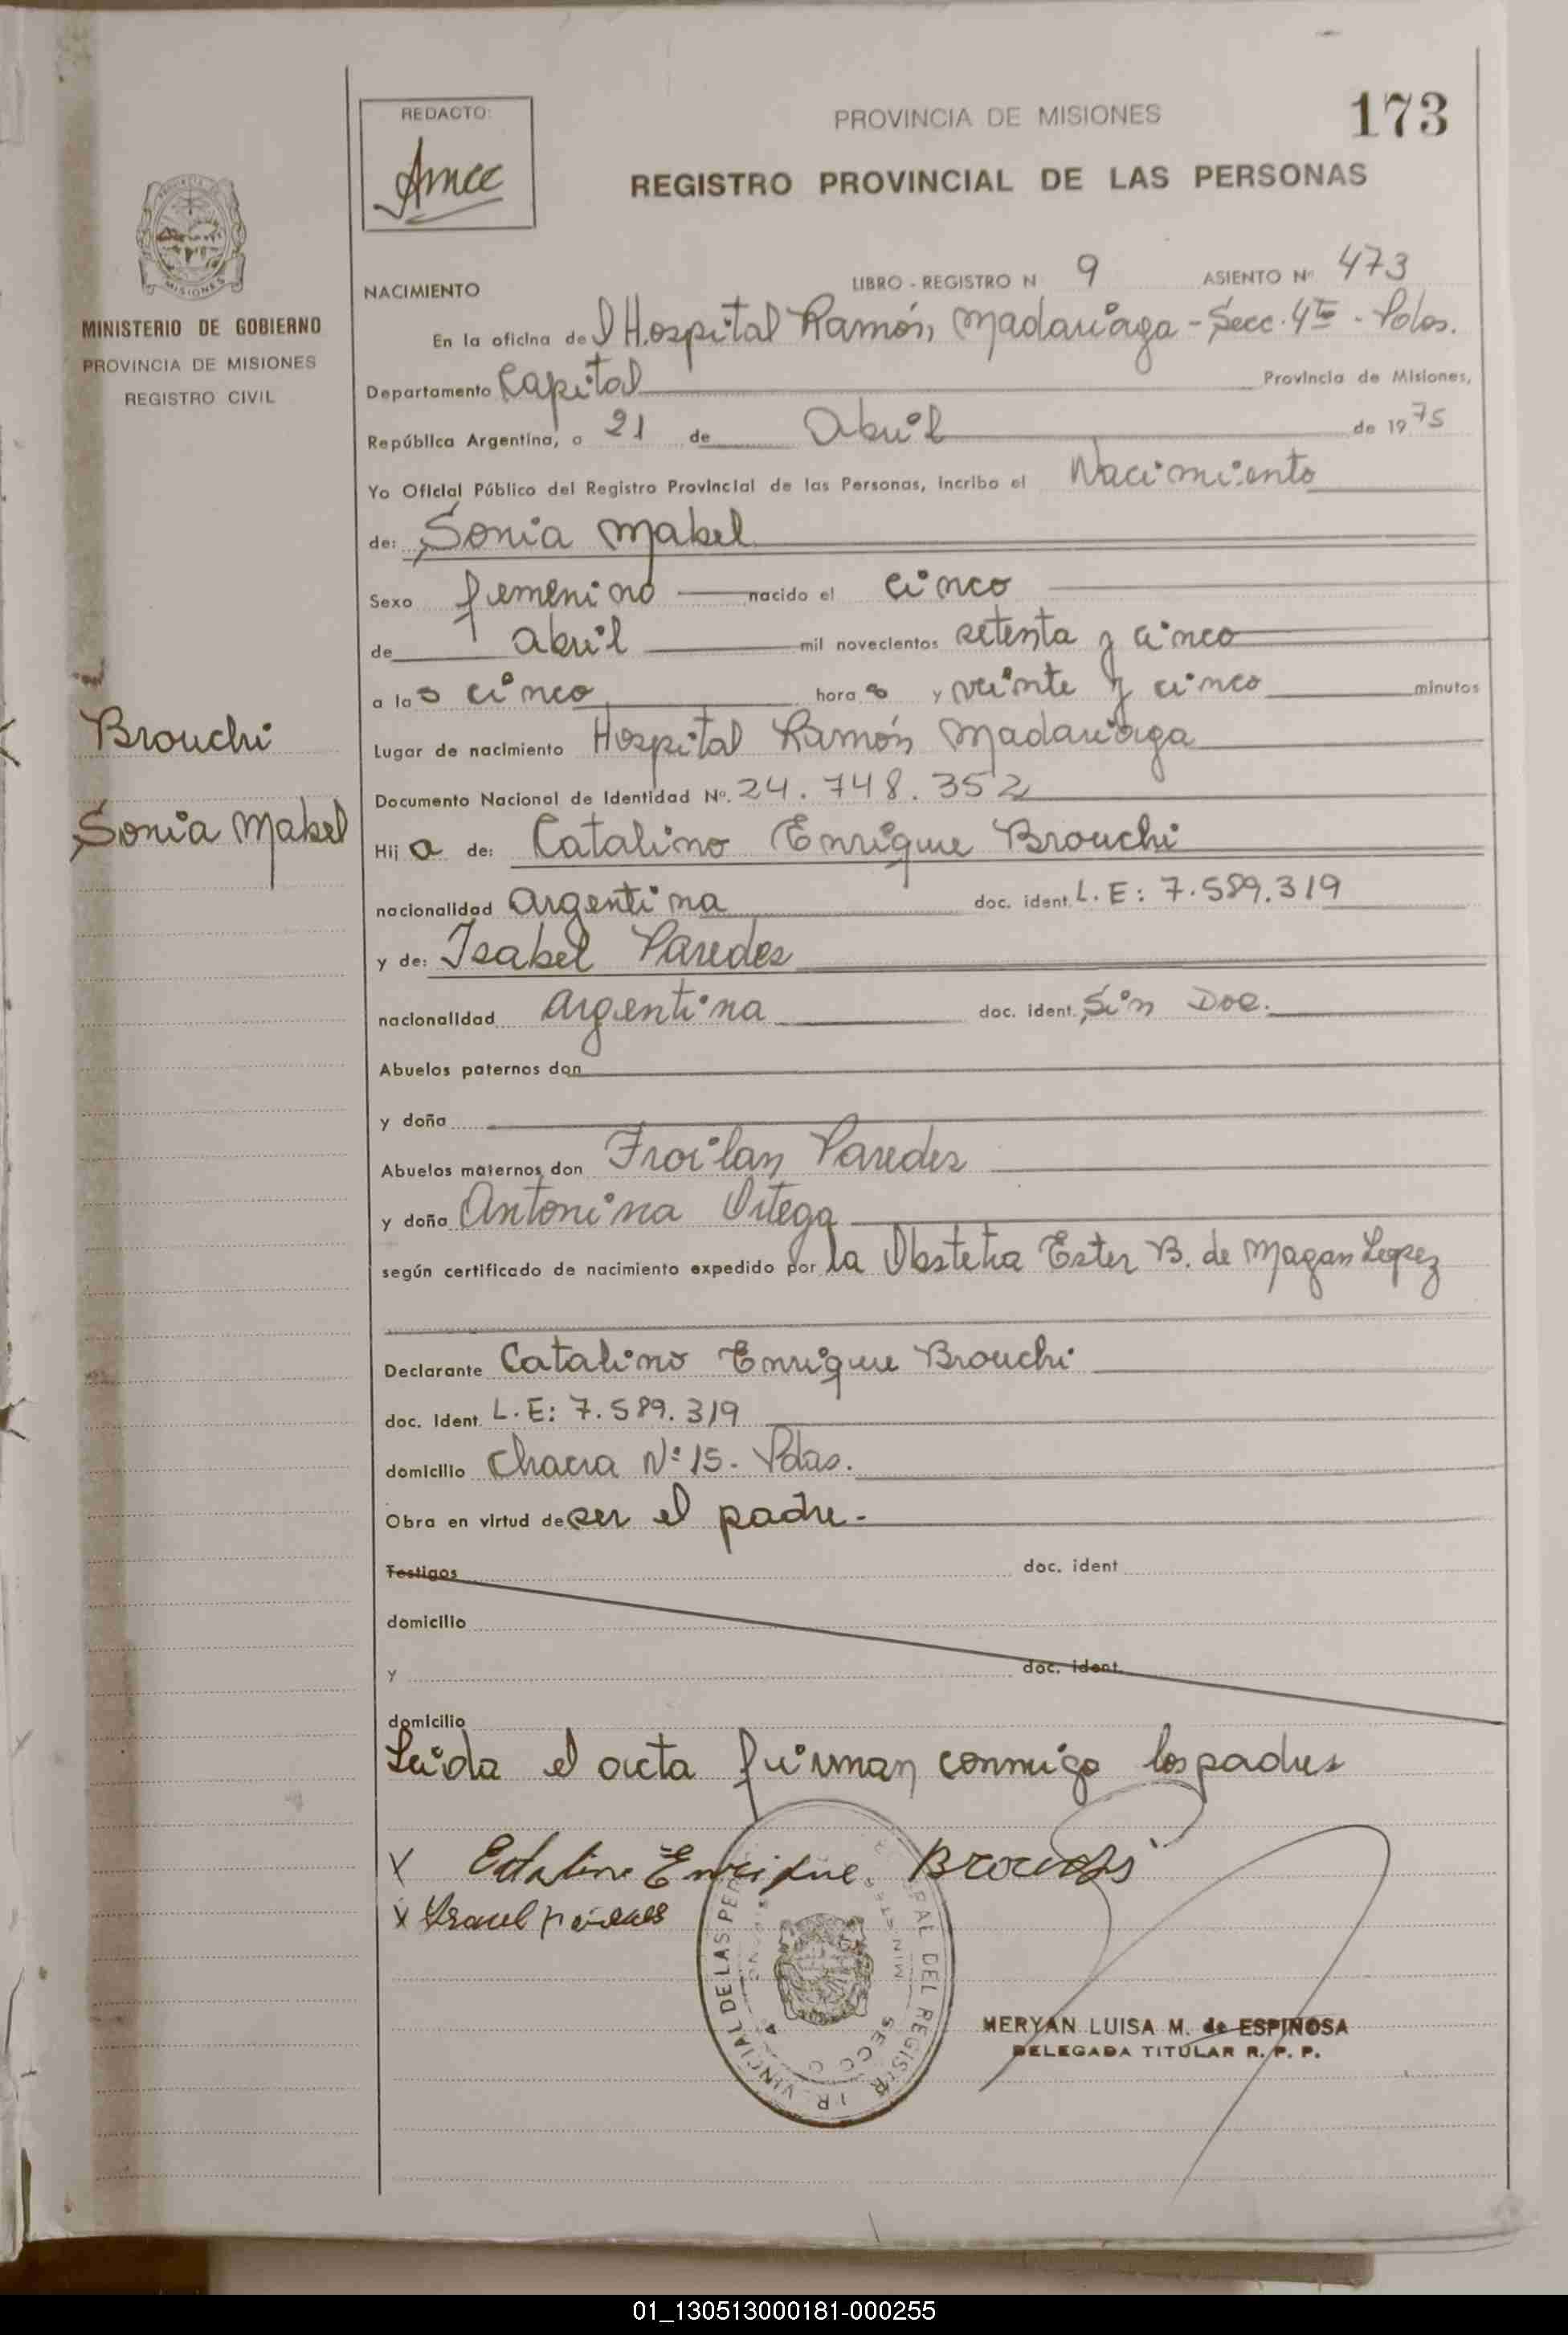 REDACTO:
Amcc
PROVINCIA DE MISIONES
173
REGISTRO PROVINCIAL DE LAS PERSONAS
MISIONES
MINISTERIO DE GOBIERNO
PROVINCIA DE MISIONES
REGISTRO CIVIL
NACIMIENTO LIBRO - REGISTRO N 9 ASIENTO Nº 473
En la oficina del Hospital Ramón Madariaga - Secc. 4ta - Pdas.
Departamento Capital Provincia de Misiones,
República Argentina, a 21 de Abril de 1975
Yo Oficial Público del Registro Provincial de las Personas, incribo el Nacimiento
de: Sonia Mabel
Sexo femenino nacido el cinco
de abril mil novecientos setenta y cinco
a las cinco horas y veinte y cinco minutos
Brouchi
Lugar de nacimiento Hospital Ramón Madariaga
Documento Nacional de Identidad Nº. 24.748.352
Sonia Mabel
Hija de: Catalino Enrique Brouchi
nacionalidad Argentina doc. ident. L.E: 7.589.319
y de: Isabel Paredes
nacionalidad Argentina doc. ident. Sin Doc.
Abuelos paternos don
y doña
Abuelos maternos don Froilan Paredes
y doña Antonina Ortega
según certificado de nacimiento expedido por la Obstetra Ester B. de Magan Lopez
Declarante Catalino Enrique Brouchi
doc. Ident. L.E: 7.589.319
domicilio Chacra Nº 15 - Pdas.
Obra en virtud de ser el padre.-
Testigos doc. ident
domicilio
y doc. ident.
domicilio
Leida el acta firman conmigo los padres
X Catalino Enrique Brouchi
X Isabel paredes
MERYAN LUISA M. de ESPINOSA
DELEGADA TITULAR R. P. P.
01_130513000181-000255